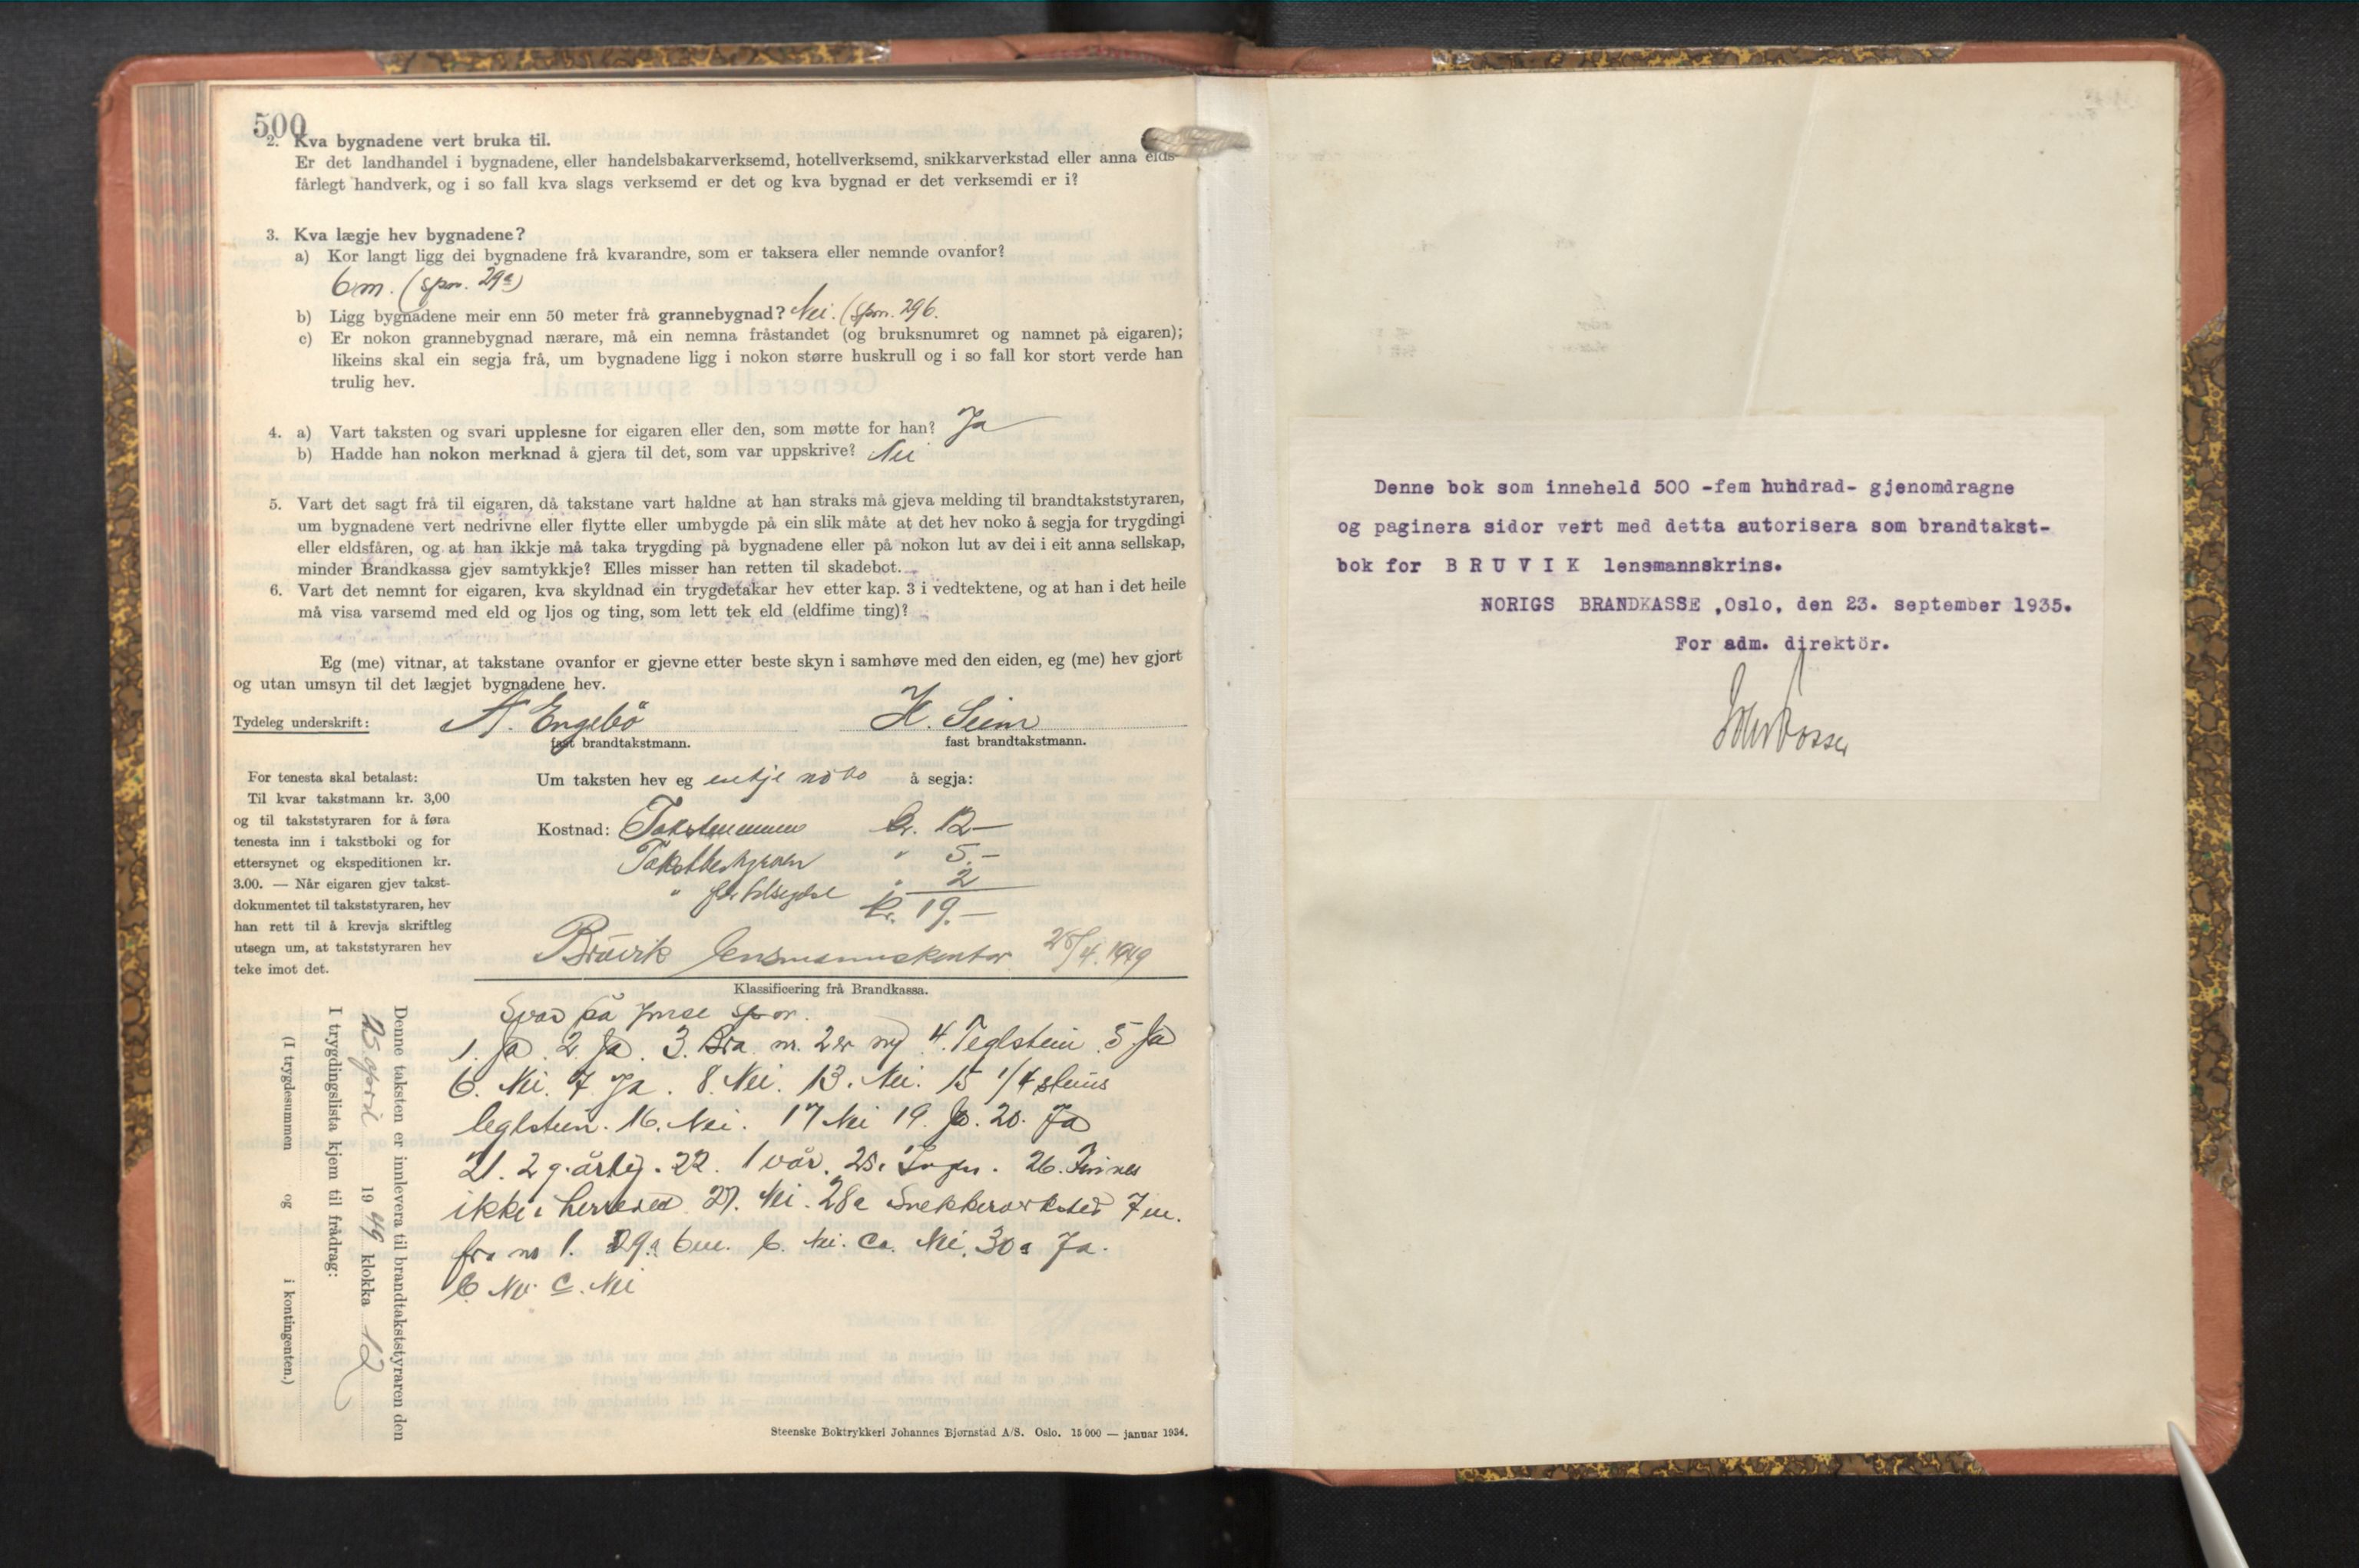 500
2. Kva bygnadene vert bruka til.
Er det landhandel i bygnadene, eller handelsbakarverksemd, hotellverksemd, snikkarverkstad eller anna elds-
fårlegt handverk, og i so fall kva slags verksemd er det og kva bygnad er det verksemdi er i?
3. Kva lægje hev bygnadene?
a) Kor langt ligg dei bygnadene frå kvarandre, som er taksera eller nemnde ovanfor?
6 m. (spm. 29a)
b) Ligg bygnadene meir enn 50 meter frå grannebygnad? Nei. (spm. 29b.
c) Er nokon grannebygnad nærare, må ein nemna fråstandet (og bruksnumret og namnet på eigaren);
likeins skal ein segja frå, um bygnadene ligg i nokon større huskrull og i so fall kor stort verde han
trulig hev.
4. a) Vart taksten og svari upplesne for eigaren eller den, som møtte for han? Ja
b) Hadde han nokon merknad å gjera til det, som var uppskrive? Nei
5. Vart det sagt frå til eigaren, då takstane vart haldne at han straks må gjeva melding til brandtakststyraren,
um bygnadene vert nedrivne eller flytte eller umbygde på ein slik måte at det hev noko å segja for trygdingi
eller eldsfåren, og at han ikkje må taka trygding på bygnadene eller på nokon lut av dei i eit anna sellskap,
minder Brandkassa gjev samtykkje? Elles misser han retten til skadebot.
6. Vart det nemnt for eigaren, kva skyldnad ein trygdetakar hev etter kap. 3 i vedtektene, og at han i det heile
må visa varsemd med eld og ljos og ting, som lett tek eld (eldfime ting)?
Eg (me) vitnar, at takstane ovanfor er gjevne etter beste skyn i samhøve med den eiden, eg (me) hev gjort
og utan umsyn til det lægjet bygnadene hev.
Tydeleg underskrift: A. Engebö H. Seim
fast brandtakstmann. fast brandtakstmann.
For tenesta skal betalast:
Til kvar takstmann kr. 3,00
og til takststyraren for å føra
tenesta inn i takstboki og for
ettersynet og ekspeditionen kr.
3.00. — Når eigaren gjev takst-
dokumentet til takststyraren, hev
han rett til å krevja skriftleg
utsegn um, at takststyraren hev
teke imot det.
Um taksten hev eg å segja:
Kostnad: Takstmennene kr. 12 —
Takstbestyreren " 5.—
" " 2
kr. 19.—
Bruvik lensmannskontor 25/4.1949
Klassificering frå Brandkassa.
Svar på spør.
1. Ja. 2. Ja. 3. Bra nr. 2 er ny 4. Teglstein. 5 Ja
6. Nei. 7. Ja. 8 Nei. 13. Nei. 15 1/4 steins
teglstein. 16. Nei. 17 Nei 19. Ja. 20. Ja
21. 2 g. årlig. 22. 1 vår. 25. Ingen. 26. Finnes
ikke i herredet 27. Nei. 28a Snekkerverksted 7 m.
fra no 1. 29a 6 m. b. Nei. Ca. Nei. 30a Ja.
b Nei c. Nei
Denne taksten er innlevera til brandtakststyraren den
25 april 1949 klokka 12
I trygdingslista kjem til frådrag:
(I trygdesummen og i kontingenten.)
Steenske Boktrykkeri Johannes Bjørnstad A/S. Oslo. 15 000 — januar 1934.
Denne bok som inneheld 500 -fem huhdrad- gjenomdragne
og paginera sidor vert med detta autorisera som brandtakst-
bok for B R U V I K lensmannskrins.
NORIGS BRANDKASSE ,Oslo, den 23. september 1935.
For adm. direktör.